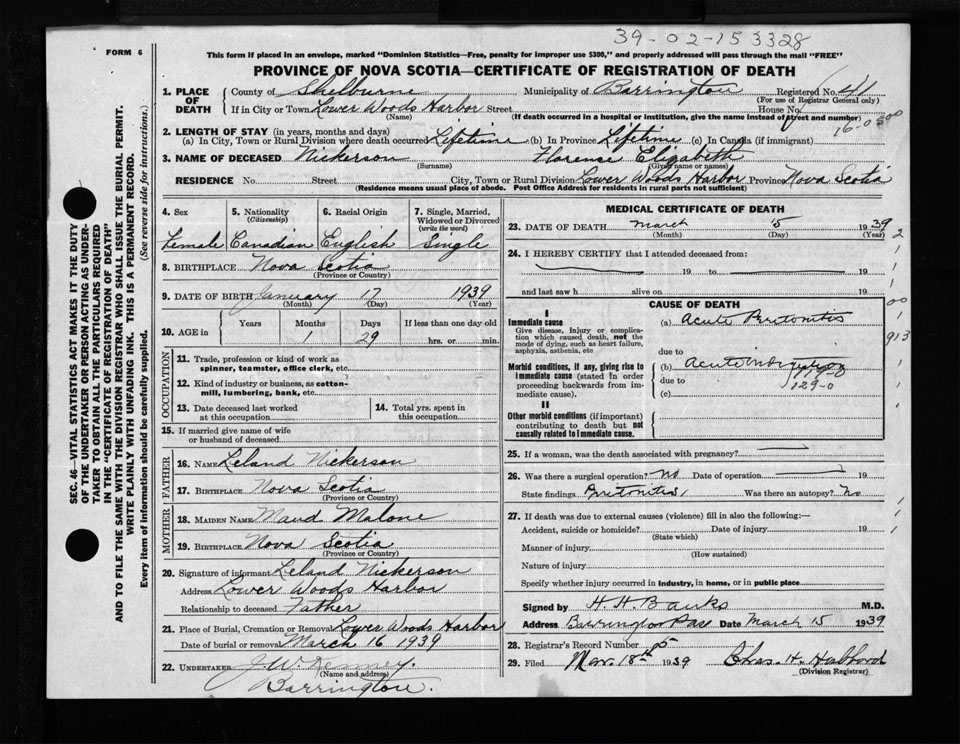 39-02-15 3328
FORM 6
This form if placed in an envelope, marked "Dominion Statistics—Free, penalty for improper use $300," and properly addressed will pass through the mail "FREE"
PROVINCE OF NOVA SCOTIA—CERTIFICATE OF REGISTRATION OF DEATH
1. PLACE OF DEATH
County of Shelburne Municipality of Barrington Registered No. 41
(For use of Registrar General only)
If in City or Town Lower Woods Harbor Street House No.
(Name) (If death occurred in a hospital or institution, give the name instead of street and number)
2. LENGTH OF STAY (in years, months and days)
(a) In City, Town or Rural Division where death occurred Lifetime (b) In Province Lifetime (c) In Canada (if immigrant)
3. NAME OF DECEASED Nickerson Florence Elizabeth
(Surname) (Given name or names)
RESIDENCE No. Street City, Town or Rural Division Lower Woods Harbor Province Nova Scotia
(Residence means usual place of abode. Post Office Address for residents in rural parts not sufficient)
SEC. 46—VITAL STATISTICS ACT MAKES IT THE DUTY
OF THE UNDERTAKER OR PERSON ACTING AS UNDER-
TAKER TO OBTAIN ALL THE PARTICULARS REQUIRED
IN THE "CERTIFICATE OF REGISTRATION OF DEATH"
AND TO FILE THE SAME WITH THE DIVISION REGISTRAR WHO SHALL ISSUE THE BURIAL PERMIT.
WRITE PLAINLY WITH UNFADING INK. THIS IS A PERMANENT RECORD.
Every item of information should be carefully supplied. (See reverse side for instructions.)
4. Sex 5. Nationality (Citizenship) 6. Racial Origin 7. Single, Married, Widowed or Divorced (write the word)
Female Canadian English Single
8. BIRTHPLACE Nova Scotia
(Province or Country)
9. DATE OF BIRTH January 17 1939
(Month) (Day) (Year)
10. AGE in Years Months Days If less than one day old
1 29 hrs. or min.
OCCUPATION
11. Trade, profession or kind of work as
spinner, teamster, office clerk, etc.
12. Kind of industry or business, as cotton-
mill, lumbering, bank, etc.
13. Date deceased last worked
at this occupation
14. Total yrs. spent in
this occupation
15. If married give name of wife
or husband of deceased
FATHER
16. NAME Leland Nickerson
17. BIRTHPLACE Nova Scotia
(Province or Country)
MOTHER
18. MAIDEN NAME Maud Malone
19. BIRTHPLACE Nova Scotia
(Province or Country)
20. Signature of informant Leland Nickerson
Address Lower Woods Harbor
Relationship to deceased Father
21. Place of Burial, Cremation or Removal Lower Woods Harbor
Date of burial or removal March 16 1939
22. UNDERTAKER J. W. Kenney.
(Name and address)
Barrington.
MEDICAL CERTIFICATE OF DEATH
23. DATE OF DEATH March 15 1939
(Month) (Day) (Year)
24. I HEREBY CERTIFY that I attended deceased from:
19 to 19
and last saw h alive on 19
CAUSE OF DEATH
I
Immediate cause
Give disease, injury or complica-
tion which caused death, not the
mode of dying, such as heart failure,
asphyxia, asthenia, etc
(a) Acute Peritonitis
due to
Morbid conditions, if any, giving rise to
immediate cause (stated in order
proceeding backwards from im-
mediate cause).
(b) Acute
due to
129-0
(c)
II
Other morbid conditions (if important)
contributing to death but not
causally related to immediate cause.
25. If a woman, was the death associated with pregnancy?
26. Was there a surgical operation? No Date of operation 19
State findings Peritonitis, Was there an autopsy? No
27. If death was due to external causes (violence) fill in also the following:—
Accident, suicide or homicide? Date of injury 19
(State which)
Manner of injury
(How sustained)
Nature of injury
Specify whether injury occurred in industry, in home, or in public place
Signed by H. H. Banks M.D.
Address Barrington Pass Date March 15 1939
28. Registrar's Record Number 5
29. Filed Mar. 18th 1939 Chas. H.
(Division Registrar)
2
1
1
00
913